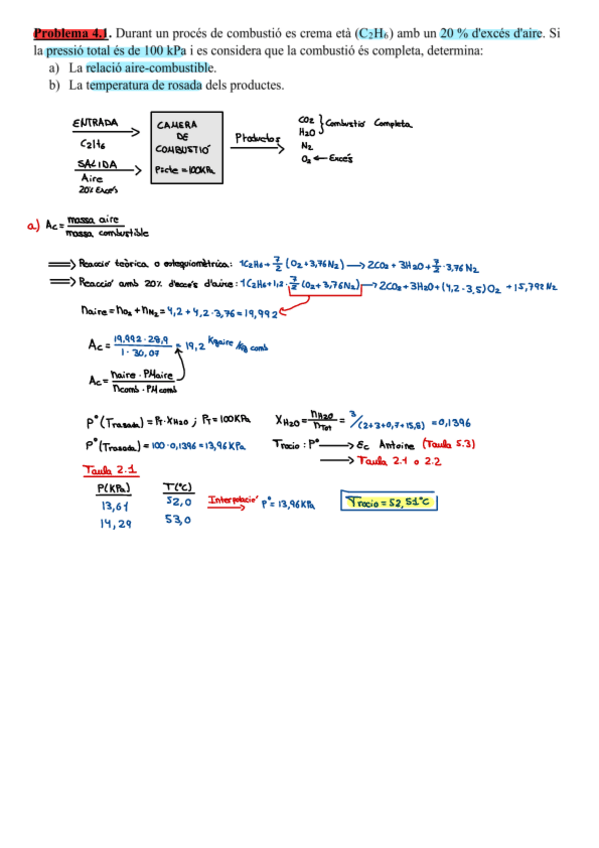 Problema 4.1. Durant un procés de combustió es crema età (C₂H₆) amb un 20 % d'excés d'aire. Si
la pressió total és de 100 kPa i es considera que la combustió és completa, determina:
a) La relació aire-combustible.
b) La temperatura de rosada dels productes.
ENTRADA
C2H6
SALIDA
Aire
20% Excés
CAMERA
DE
COMBUSTIÓ
Pscte = 100KPa
Productos
CO2
H2O
} Combustió Completa
N2
O2 ← Excés
a) Ac = massa aire / massa combustible
⟹ Reacció teòrica o estequiomètrica: 1C2H6 + 7/2 (O2 + 3,76 N2) → 2CO2 + 3H2O + 7/2 · 3,76 N2
⟹ Reacció amb 20% d'excés d'aire: 1C2H6 + 1,2 · 7/2 (O2 + 3,76 N2) → 2CO2 + 3H2O + (4,2 - 3.5) O2 + 15,792 N2
naire = nO2 + nN2 = 4,2 + 4,2 · 3,76 = 19,992
Ac = 19,992 · 28,9 / 1 · 30,07 = 19,2 Kg aire/Kg comb
Ac = naire · PMaire / ncomb · PM comb
P°(Trosada) = PT · XH2O ; PT = 100KPa
XH2O = nH2O / nTot = 3/(2+3+0,7+15,8) = 0,1396
P°(Trosada) = 100 · 0,1396 = 13,96 KPa
Trocio : P° → Ec Antoine (Taula 5.3)
→ Taula 2.1 o 2.2
Taula 2.1
P(KPa) T(°C)
13,61 52,0
14,29 53,0
Interpolació P° = 13,96 KPa
Trocio = 52,51°C